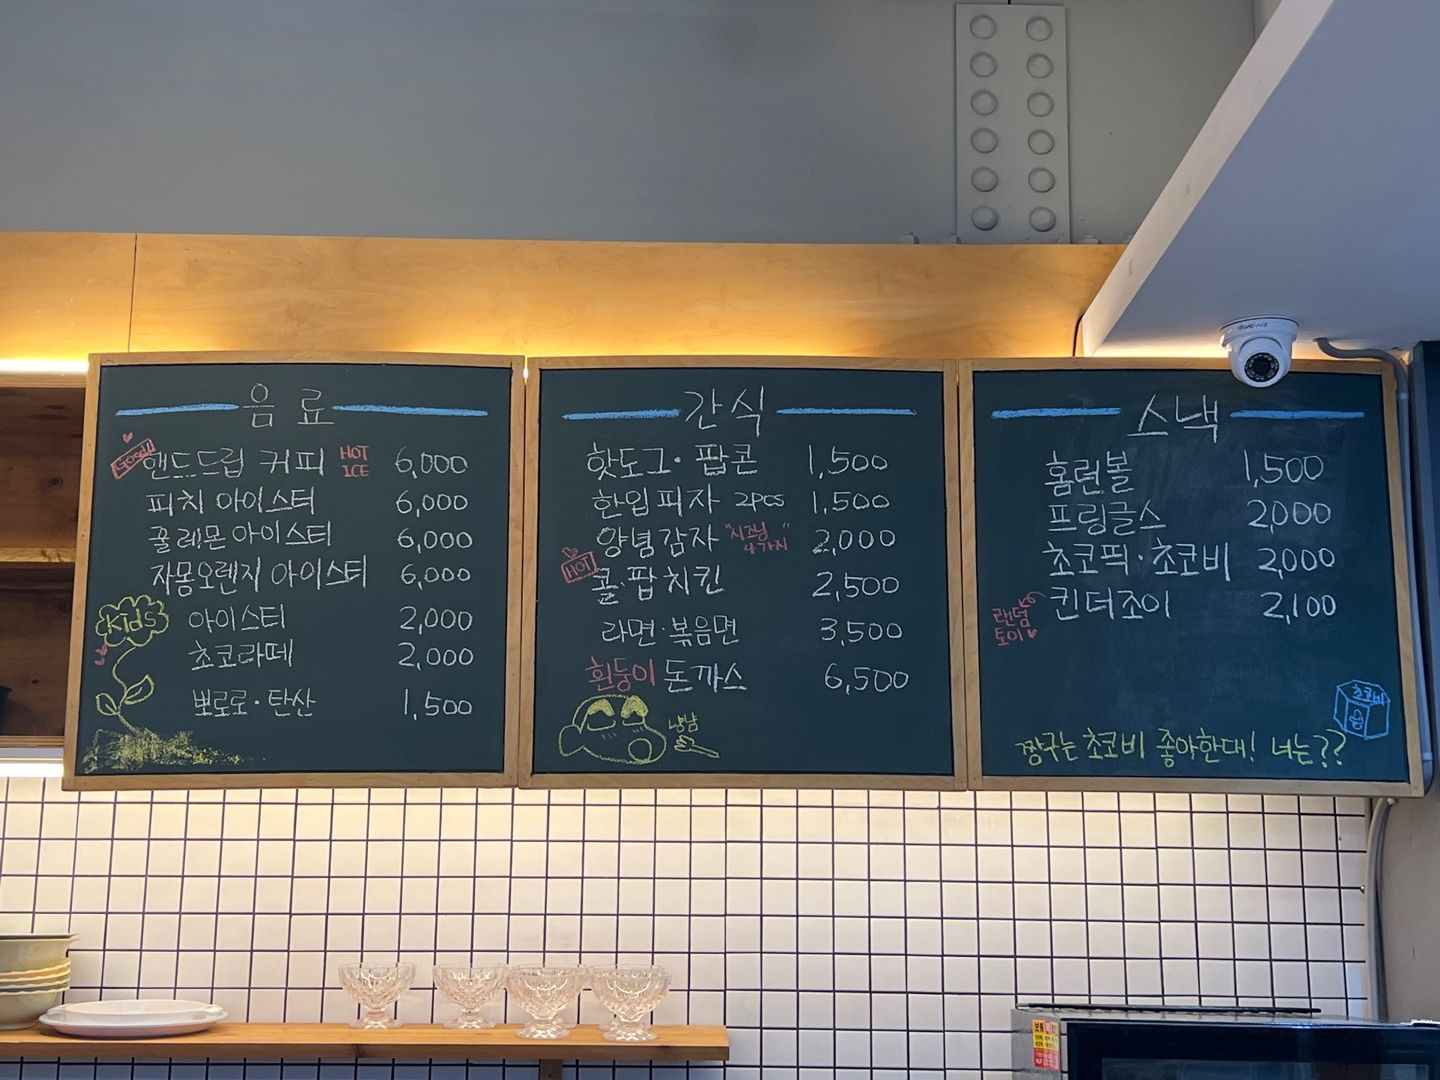 음료
Good!
핸드드립 커피 HOT ICE 6,000
피치 아이스티 6,000
풀레몬 아이스티 6,000
자몽오렌지 아이스티 6,000
Kids
아이스티 2,000
초코라떼 2,000
뽀로로·탄산 1,500
간식
핫도그·팝콘 1,500
한입피자 2pcs 1,500
양념감자 "시즈닝 4가지" 2,000
HOT
콜·팝치킨 2,500
라면·볶음면 3,500
흰둥이 돈까스 6,500
냠냠
스낵
홈런볼 1,500
프링글스 2,000
초코픽·초코비 2,000
킨더조이 2,100
랜덤
토이
초코비
짱구는 초코비 좋아한대! 너는??